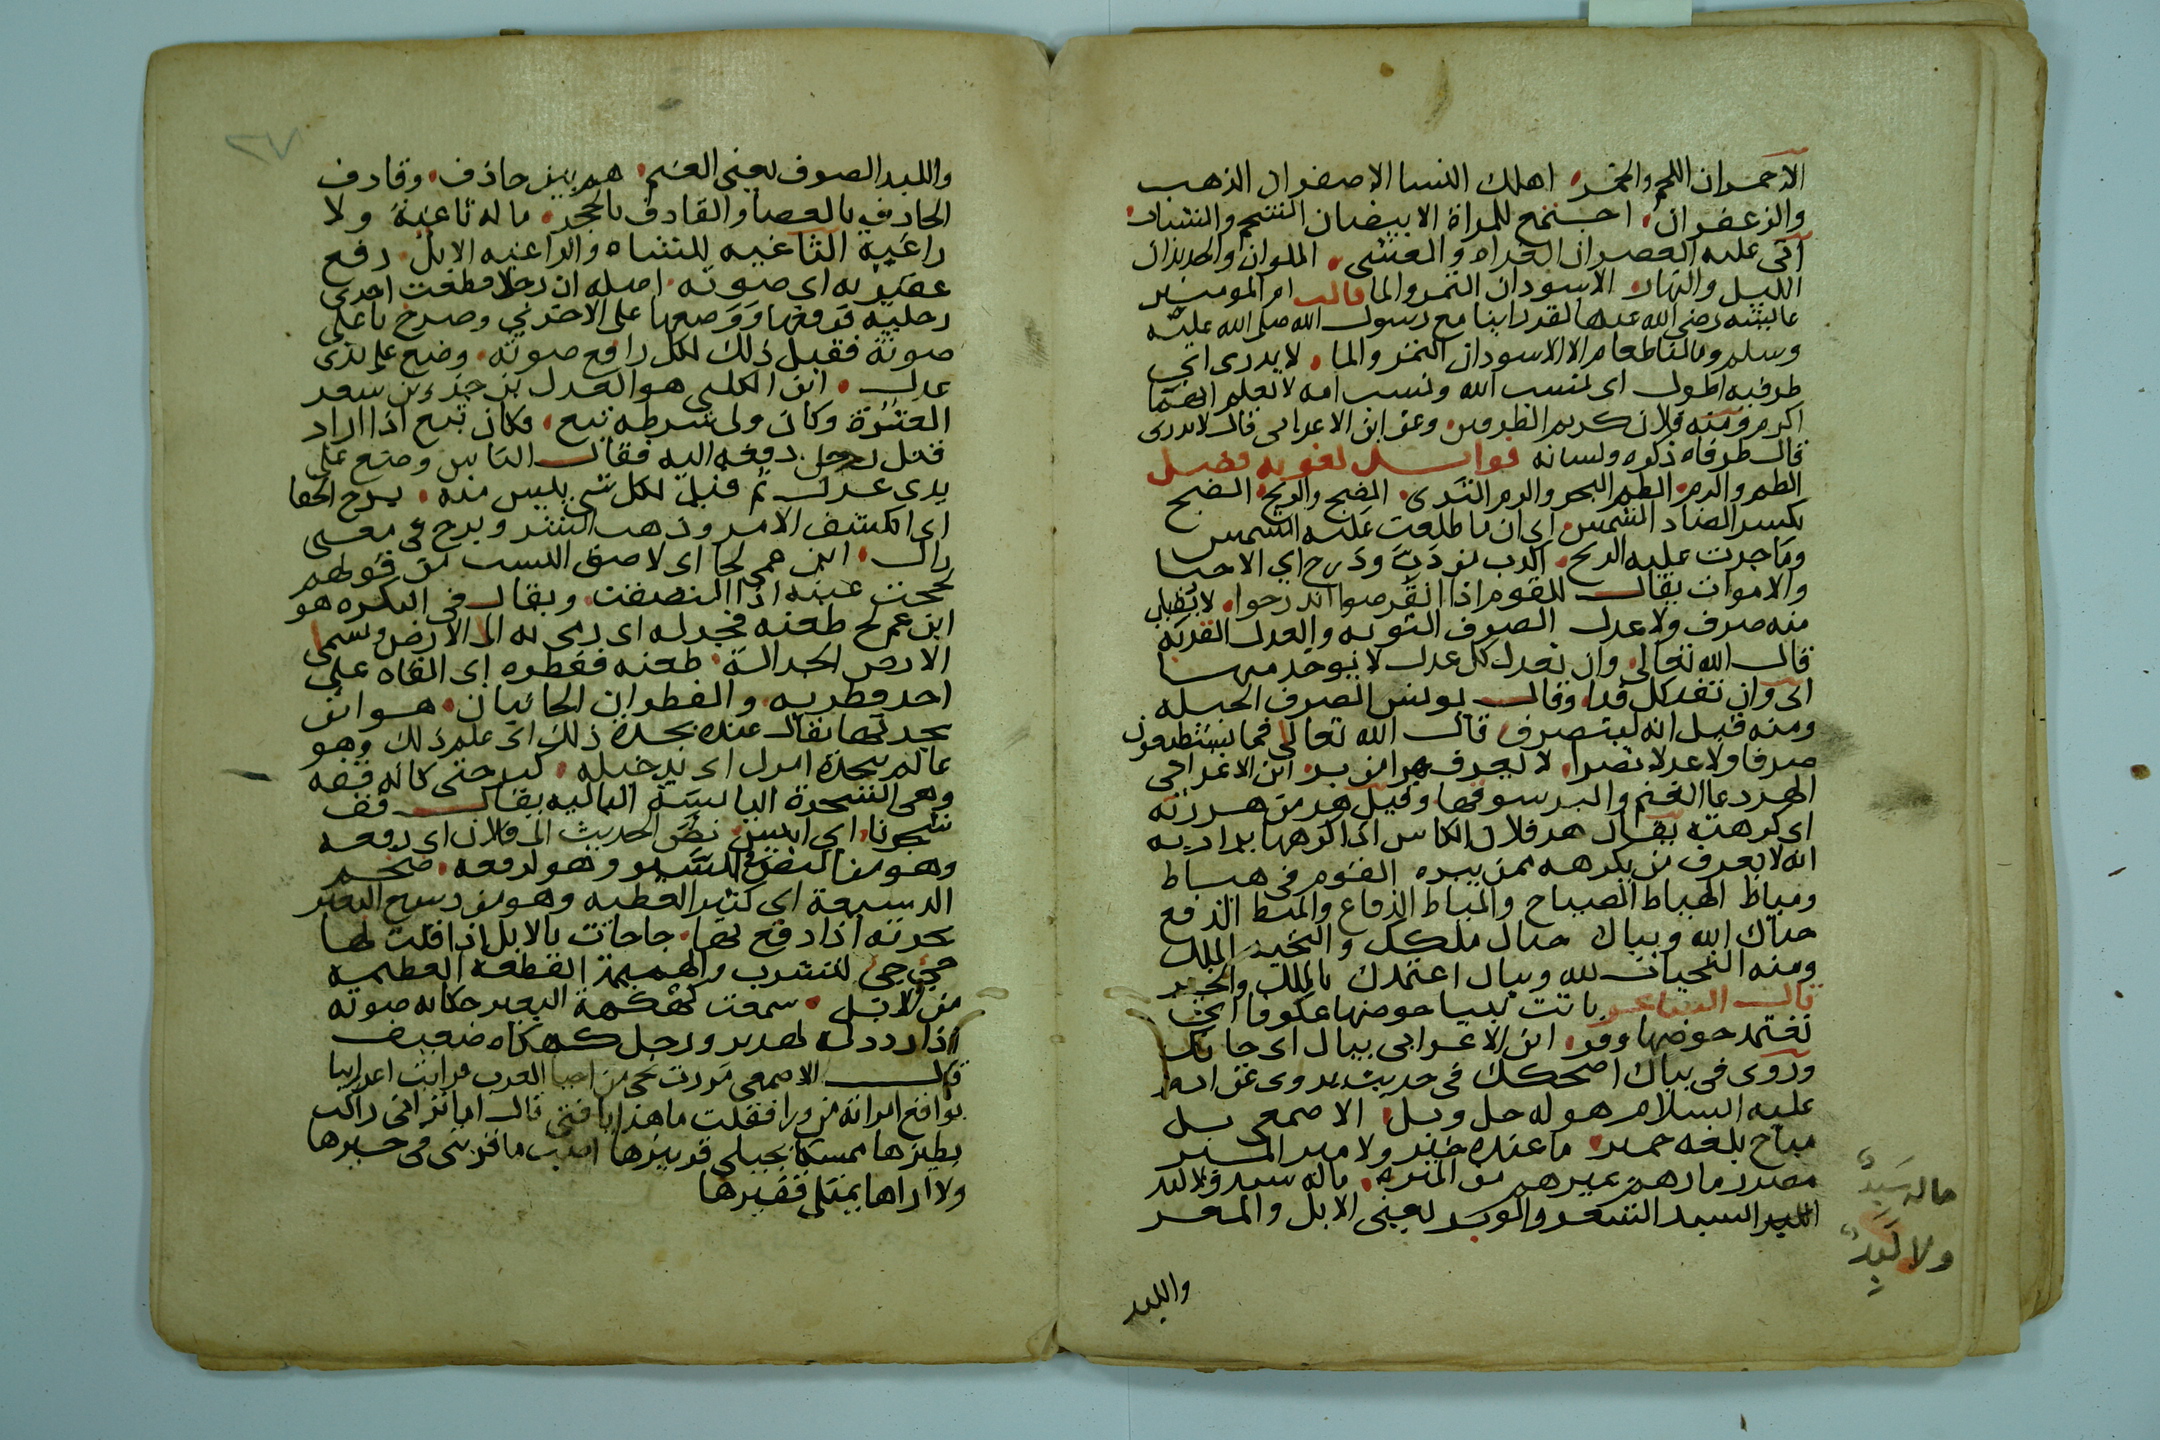 الاحمران اللحم والخمر اهلك النسا الاصفران الذهب
والزعفران اجتمع للمراة الابيضان الشحم والشباب
اتى عليه العصران الغداه والعشى الملوان والجديدان
الليل والنهار الاسودان التمر والما قالت ام المومنين
عايشه رضى الله عنها لقد راينا مع رسول الله صلى الله عليه
وسلم ومالنا طعام الا الاسودان التمر والما لا يدرى اي
طرفيه اطول اى نسب ابيه ونسب امه لا يعلم ايهما
اكرم ومنه فلان كريم الطرفين وعن ابن الاعرابى قال لا يدرى
قال طرفاه ذكره ولسانه فوايد لغويه فصل
الطم والرم الطم البحر والرم الثرى الضح والريح الضح
بكسر الضاد الشمس اى ان ما طلعت عليه الشمس
وما جرت عليه الريح اكذب من دب ودرج اي الاحيا
والاموات يقال للقوم اذا انقرضوا اندرجوا لا يقبل
منه صرف ولا عدل الصرف التوبه والعدل الفديه
قال الله تعالى وان تعدل كل عدل لا يوخذ منها
اى وان تفد كل فدا وقال يونس الصرف الحيله
ومنه قيل انه ليتصرف قال الله تعالى فما يستطيعون
صرفا ولا عدلا نصرا لا يعرف هرا من بر ابن الاعرابي
الهر دعا الغنم والبر سوقها وقيل هر من هررته
اى كرهته يقال هر فلان الكاس اذا كرهها يراد به
انه لا يعرف من يكرهه ممن يبره القوم فى هياط
ومياط الهياط الصياح والمياط الدفاع والميط الدفع
حياك الله وبياك حياك ملكك والتحيه الملك
ومنه التحيات لله وبياك اعتمدك بالملك والخير
قال الشاعر باتت تبيا حوضها عكوفا اى
تعتمد حوضها وفد ابن الاعرابى بياك اى جا بك
وروى فى بياك اضحكك فى حديث يروى عن ادم
عليه السلام هو له حل وبل الاصمعى بل
مباح بلغه حمير ما عنده خير ولا مير المير
مصدر مارهم يميرهم من الميره ماله سبد ولا لبد
السبد الشعر والوبر يعنى الابل والمعز
ماله سَبَدٌ
ولا لَبَدٌ
واللبد
٢٧
واللبد الصوف يعنى الغنم هم بين حاذف وقاذف
الحاذف بالعصا والقاذف بالحجر ما له ثاغية ولا
راغية الثاغيه للشاه والراغيه الابل رفع
عقيرته اى صوته اصله ان رجلا قطعت احدى
رجليه فرفعها ووضعها على الاخرى وصرخ باعلى
صوته فقيل ذلك لكل رافع صوته وضع على يدى
عدل ابن الكلبى هو العدل بن جزء بن سعد
العشيرة وكان ولى شرطه تبع وكان تبع اذا اراد
قتل رجل دفعه اليه فقال الناس وضع على
يدى عدل ثم قيل لكل شى ييس منه برح الخفا
اى انكشف الامر وذهب الستر وبرح فى معنى
زال ابن عمى لحا اى لاصق النسب من قولهم
لححت عينه اذا التصقت ويقال فى النكره هو
ابن عم لح طعنه فجدله اى رمى به الى الارض وتسمى
الارض الجدالة طعنه فقطره اى القاه على
احد قطريه والقطران الجانبان هو ابن
بجدتها يقال عنده بجدة ذلك اى علم ذلك وهو
عالم ببجدة امرك اى بدخيله كبر حتى كانه قفه
وهى الشجرة اليابسة الباليه يقال قف
شجرنا اى ايبس نص الحديث الى فلان اى رفعه
وهو من النص فى السير وهو ارفعه ضخم
الدسيعة اى كثير العطيه وهو من دسع البعير
بجرته اذا دفع بها جاجات بالابل اذا قلت لها
جئ جئ لتشرب والهجمة القطعة العظيمه
من الابل سمعت كهكهة البعير حكايه صوته
اذا ردد له لهدير ورجل كهكاه ضعيف
قال الاصمعى مررت بحى من احيا العرب فرايت اعرابيا
يواقع امراته من ورا فقلت ما هذا يا فتى قال اما ترانى راكب
بطيزها ممسكا بحبلى قرنيزها اصبت ما فرتنى فى حيرها
ولا اراها بمثلى فقيرها